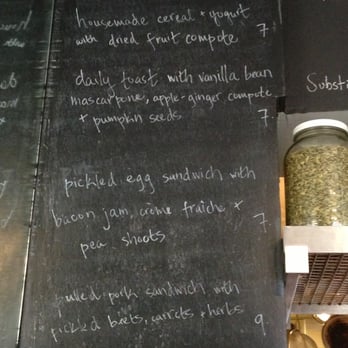 housemade cereal + yogurt
with dried fruit compote 7
daily toast with vanilla bean
mascarpone, apple-ginger compote
+ pumpkin seeds 7
pickled egg sandwich with
bacon jam, crème fraîche +
pea shoots 7
pulled pork sandwich with
pickled beets, carrots + herbs 9
Substi